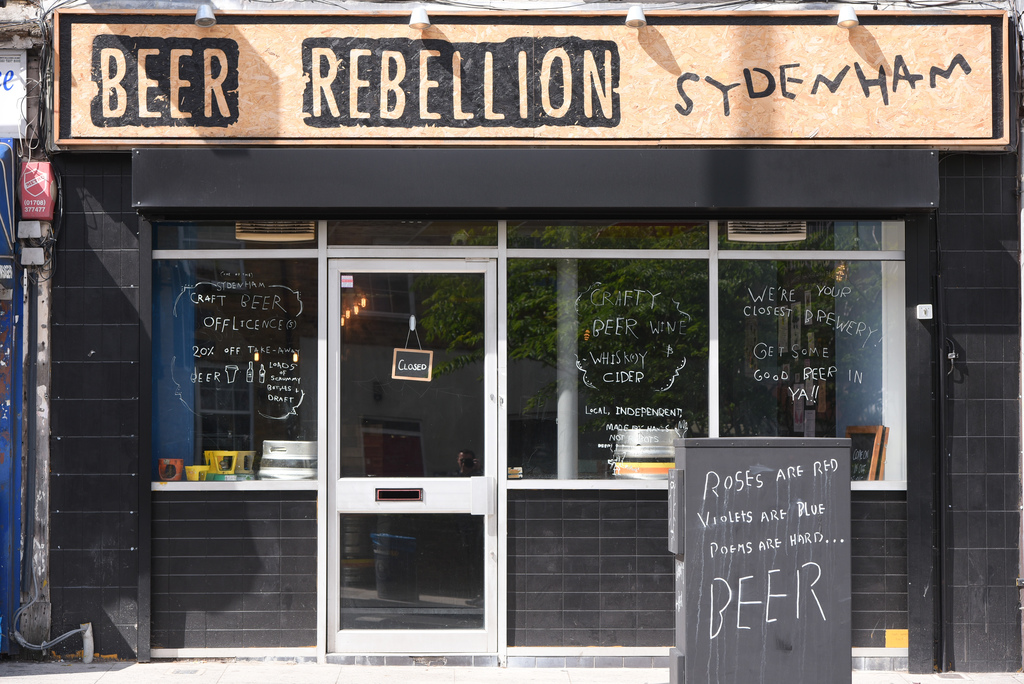 BEER REBELLION SYDENHAM
(01708)
377477
SYDENHAM
CRAFT BEER
OFFLICENCE(S)
20% OFF TAKE-AWAY
BEER
LOADS
OF
SCRUMMY
BOTTLES &
DRAFT
CLOSED
CRAFTY
BEER WINE
WHISK(E)Y
CIDER
LOCAL, INDEPENDENT,
MADE BY HANDS
NOT ROBOTS
WE'RE YOUR
CLOSEST BREWERY,
GET SOME
GOOD BEER IN
YA!!
ROSES ARE RED
VIOLETS ARE BLUE
POEMS ARE HARD...
BEER